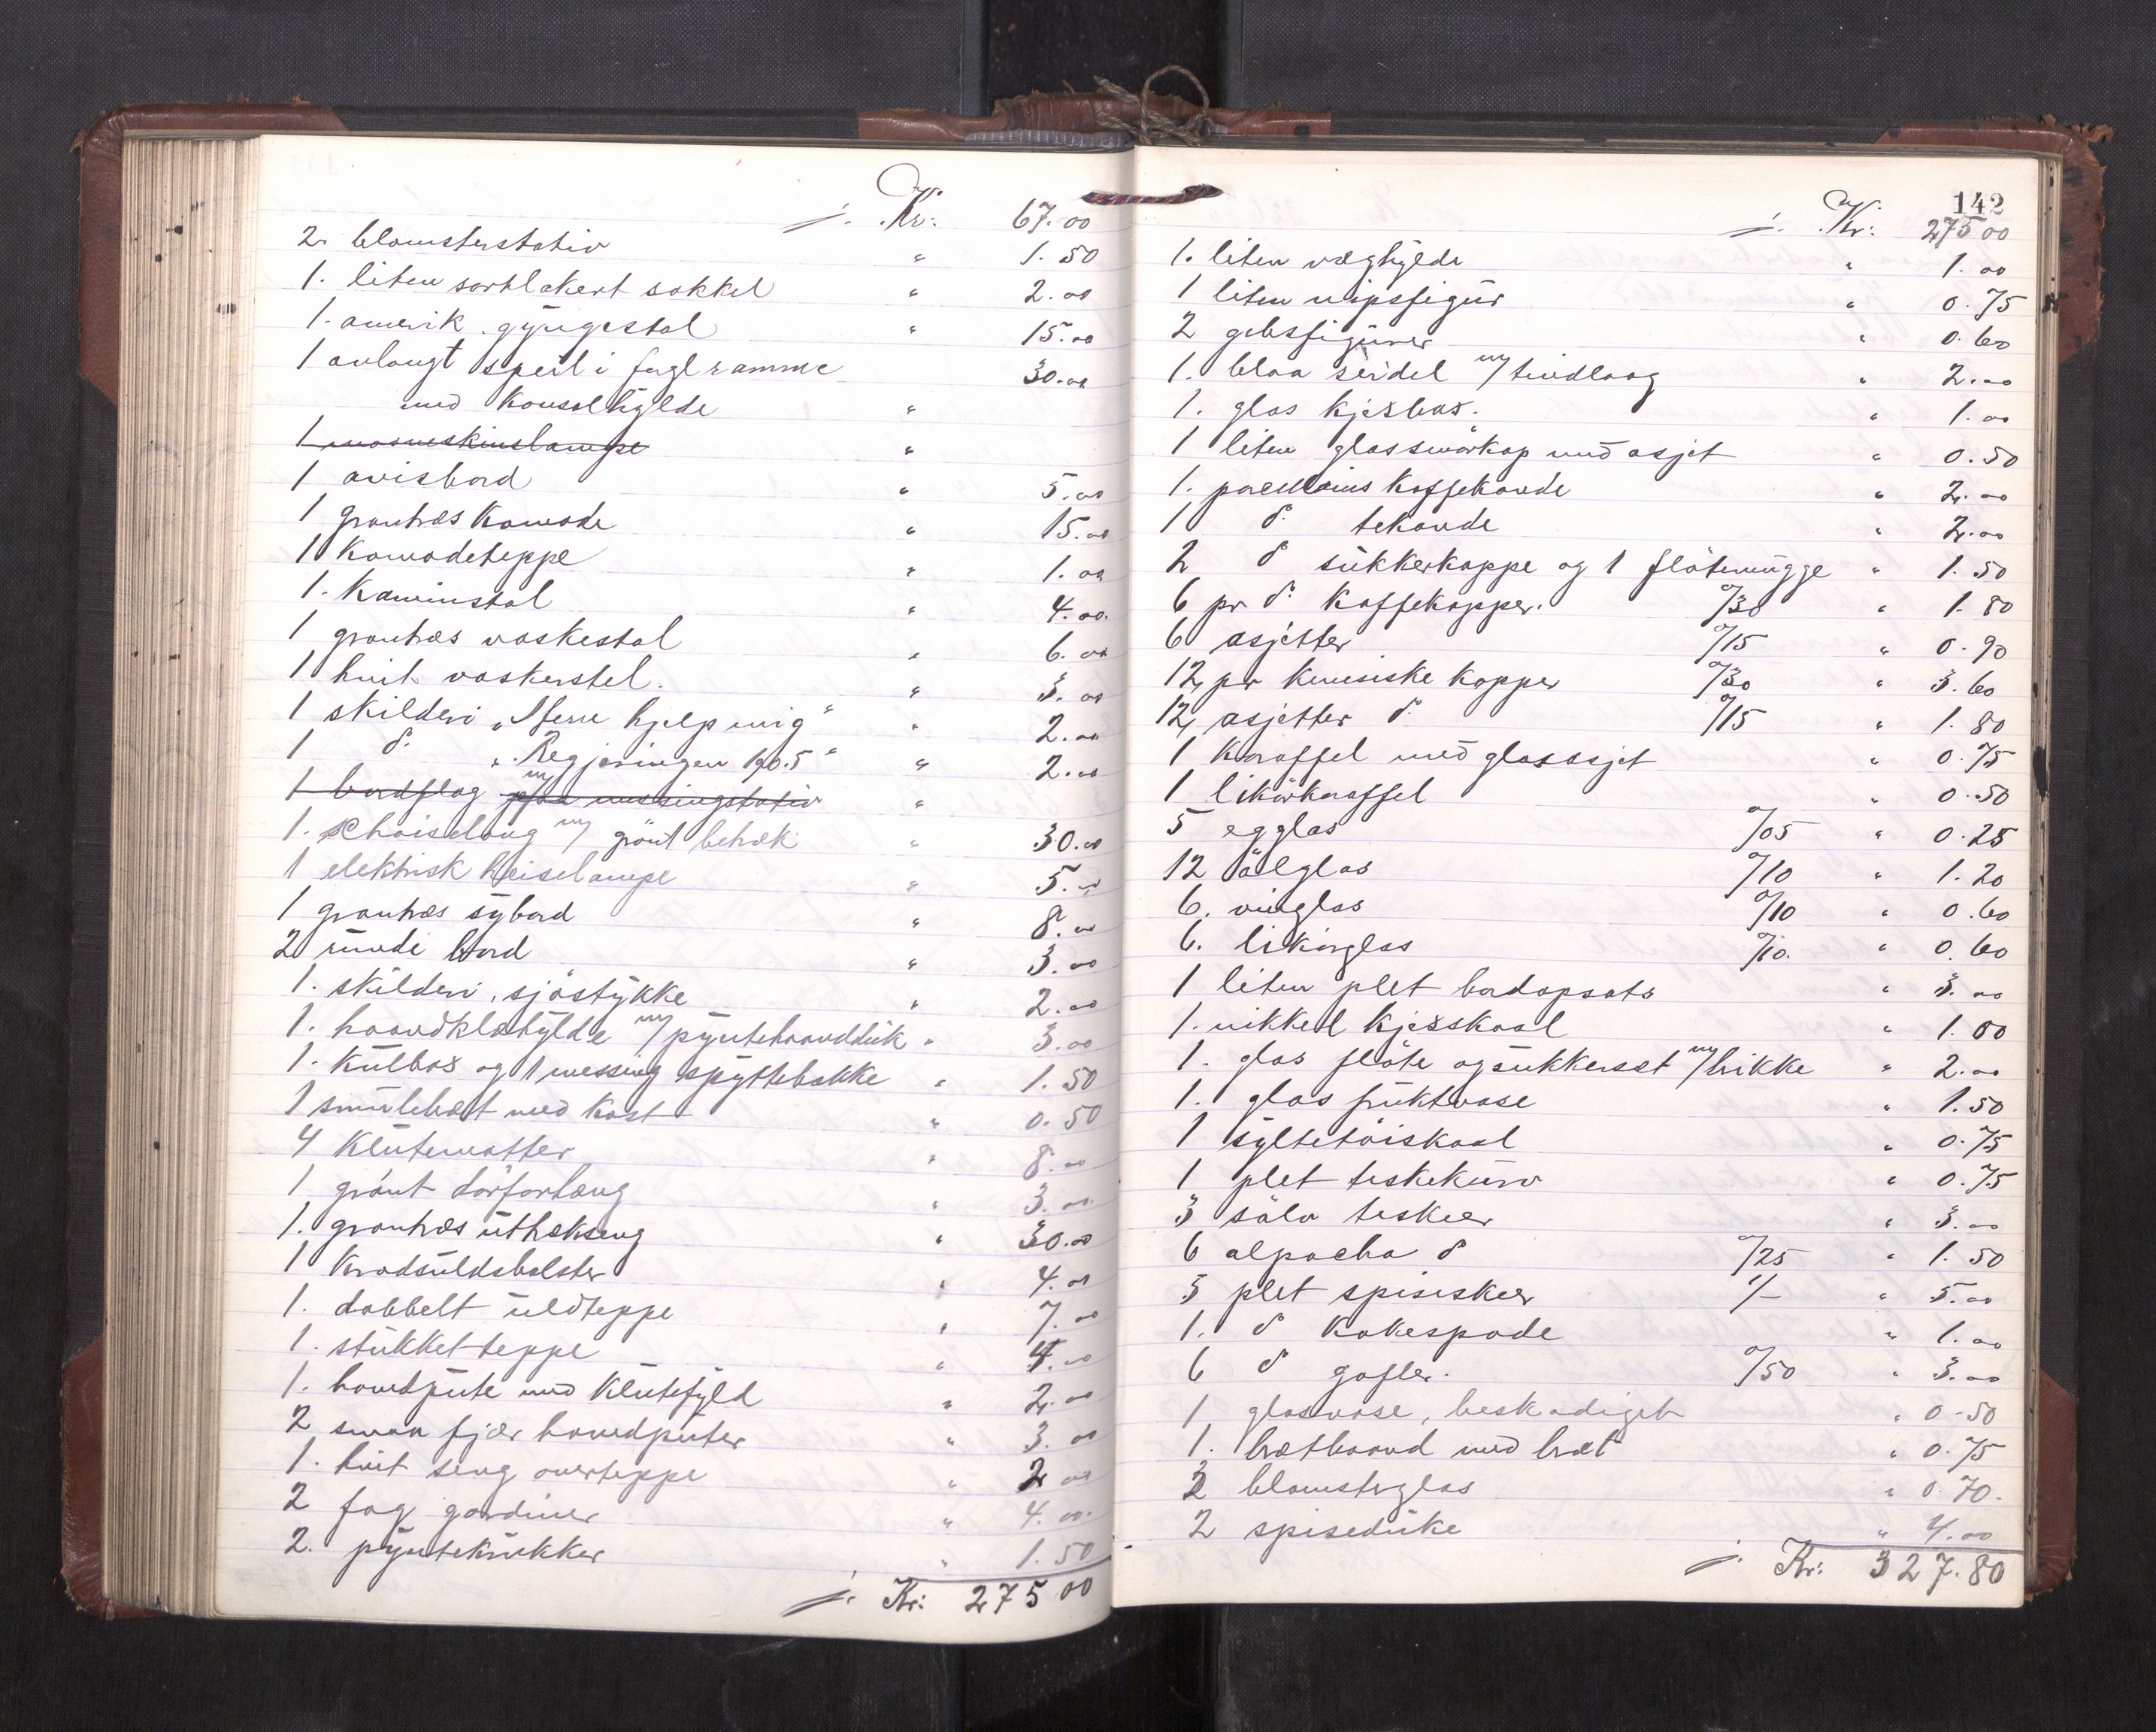 j. Kr: 67.00
2. blomsterstativ " 1.50
1. liten sortlakert sokkel " 2.00
1. amerik. gyngestol " 15.00
1 avlangt speil i fugl ramme 30.00
med Konsolhylde "
1 masurskinslampe "
1 avisbord " 5.00
1 grantræs Komode " 15.00
1 Komodeteppe " 1.00
1. Kaminstol " 4.00.
1 grantræs vaskestol " 6.00
1 hvit vaskerstel. " 3.00
1 skilderi „Herre hjelp mig" " 2.00
1 do. „Regjeringen 1905" " 2.00
1 bordflag m/ paa messingstativ "
1. schaiselong m/ grönt betræk " 30.00
1 elektrisk heiselampe " 5.00
1 grantræs sybord " 8.00
2 runde bord " 3.00
1. skilderi, sjöstykke " 2.00
1. haandklæhylde m/ pyntehaandduk " 3.00
1. Kulbox og 1 messing spyttebakke " 1.50
1 smulebræt med Kost " 0.50
4 Klutematter " 8.00
1 grönt dörforhæng " 3.00
1. grantræs uttrækseng " 30.00
1 Kradsuldsbolster " 4.00
1. dobbelt uldteppe " 7.00
1. stukket teppe " 4.00
1. hovedpute med Klutefyld " 2.00
2 smaa fjær hovedputer " 3.00
1. hvit seng overteppe " 2.00
2 fag gardiner " 4.00.
2. pyntekrukker " 1.50
j. Kr: 275 00
142
j. Kr: 275 00
1. liten væghylde " 1.00
1 liten nipsfigur " 0.75
2 gibsfigurer " 0.60
1. blaa seidel m/ tindlaag " 2.00
1. glas kjæxbox. " 1.00
1 liten glassmörkop med asjet " 0.50
1. porcellains Kaffekande " 2.00
1 do. tekande " 2.00
2 do sukkerkoppe og 1 flötemugge " 1.50
6 pr do. Kaffekopper. o/30 " 1.80
6 asjetter o/15 " 0.90
12 pr kinesiske kopper o/30 " 3.60
12 asjetter do. o/15 " 1.80
1 Karaffel med glasasjet " 0.75
1 likörkaraffel " 0.50
5 egglas o/05 " 0.25
12 ölglas o/10 " 1.20
6. vinglas o/10 " 0.60
6. likörglas o/10. " 0.60
1 liten plet bordopsats " 3.00
1. nikkel Kjæxskaal " 1.00
1. glas flöte og sukkersæt m/ brikke " 2.00
1. glas fruktvase " 1.50
1 syltetöiskaal " 0.75
1 plet teskekurv " 0.75
3 sölv teskeer " 3.00
6 alpacha do o/25 " 1.50
5 plet spiseskeer 1/- " 5.00
1. do Kakespade " 1.00
6 do gafler. o/50 " 3.00
1 glasvase, beskadiget " 0.50
1. brætbaand med bræt " 0.75
2 blomsterglas " 0.70.
2 spiseduke " 4.00
j. Kr: 327.80